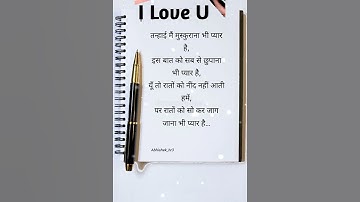 I Love U
तन्हाई मैं मुस्कुराना भी प्यार
है,
इस बात को सब से छुपाना
भी प्यार है,
यूँ तो रातों को नींद नहीं आती
हमें,
पर रातों को सो कर जाग
जाना भी प्यार है...